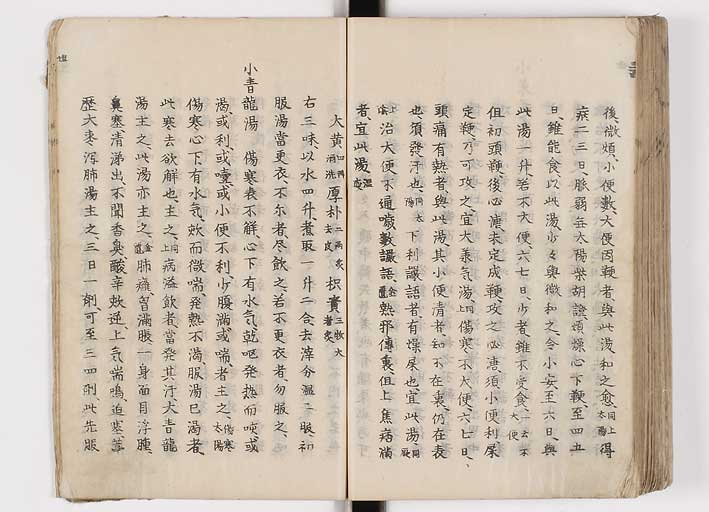 後、微煩、小便数、大便因鞕者、與此湯和之愈、同上太陽 得
病二三日、脉弱、無太陽柴胡證、煩燥心下鞕、至四五
日、雖能食、以此湯少々與微和之、令小安、至六日、與
此湯一升、若不大便六七日、少者、雖不受食、一云不大便
但初頭鞕、後必溏、未定成鞕、攻之必溏、須小便利屎
定鞕、乃可攻之、宜大承気湯、同上 傷寒不大便、六七日、
頭痛有熱者、與此湯、其小便清者、知不在裏、仍在表
也、須發汗也、同太陽 下利讝語者、有燥屎也、宜此湯、同
治大便不通、噦、数讝語、金 熱邪傳裏、但上焦痞滿
者、宜此湯、
大黄 四両酒洗 厚朴 二両炙去皮 枳實 三枚大者炙
右三味、以水四升、煮取一升二合、去滓、分温二服、初
服湯當更衣、不尓者尽飲之、若不更衣者、勿服之、
小青龍湯 傷寒表不解、心下有水気、乾呕発熱而咳、或
渇、或利、或噎、或小便不利、少腹滿、或喘、者主之、傷寒太陽
傷寒心下有水気、欬而微喘、発熱不渇、服湯已渇者、
此寒去欲解也、主之、同上 病溢飲者、當発其汗、大青龍
湯主之、此湯亦主之、金 肺癰、胷滿脹、一身面目浮腫、
鼻塞清涕出、不聞香臭酸辛、欬逆上気、喘鳴迫塞、葶
歴大棗泻肺湯主之、三日一剤、可至三四剤、此先服